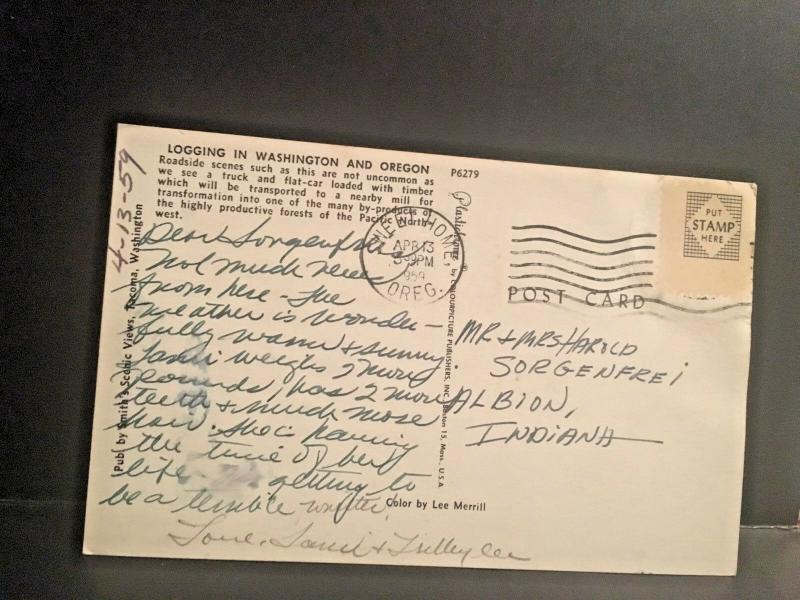 LOGGING IN WASHINGTON AND OREGON
Roadside scenes such as this are not uncommon as
we see a truck and flat-car loaded with timber
which will be transported to a nearby mill for
transformation into one of the many by-products of
the highly productive forests of the Pacific North-
west.
P6279
4-13-59
(Pub. by Smith's Scenic Views, Tacoma, Washington
Plastichrome ® by COLOURPICTURE PUBLISHERS, INC., Boston 15, Mass., U.S.A
SWEET HOME,
APR 13
PM
1959
OREG.
PUT
STAMP
HERE
POST CARD
Dear Sorgenfreis,
Not much new
from here - The
weather is wonder-
fully warm & sunny
weighs 2 more
pounds, has 2 more
teeth & much more
hair. She's having
the time of her
life. getting to
be a terrible writer!
Love,
MR & MRS HAROLD
SORGENFREI
ALBION,
INDIANA
Color by Lee Merrill